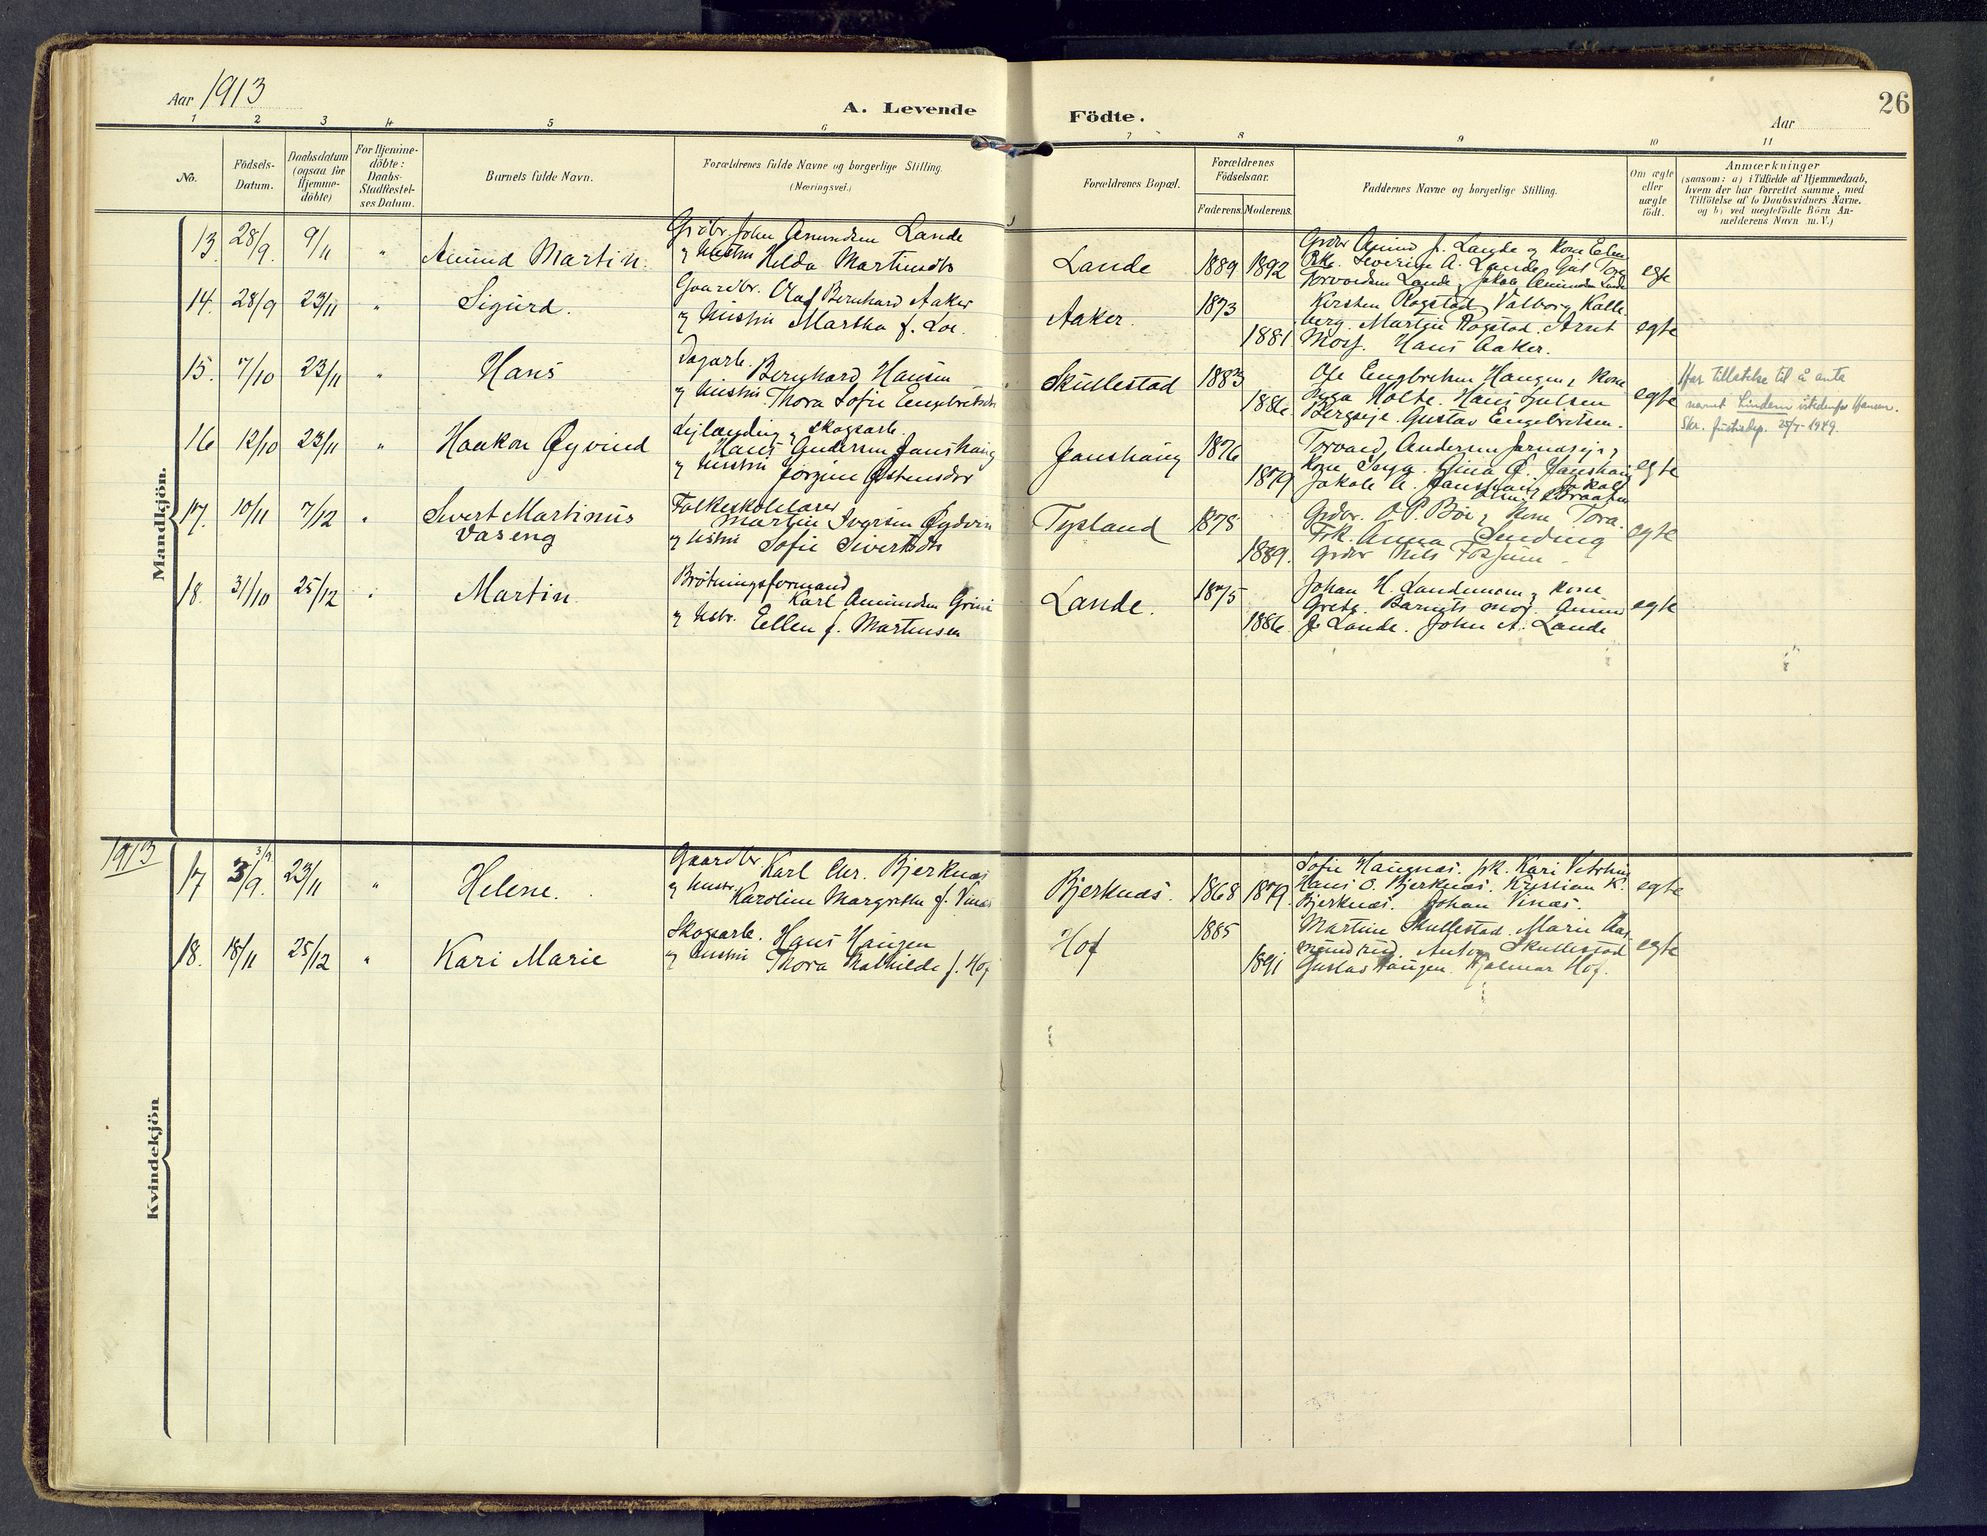 Aar 1913
A. Levende Födte.
26
Aar
1 2 3 4 5 6 7 8 9 10 11
No.
Födsels-Datum.
Daabsdatum (ogsaa for Hjemme-döbte)
For Hjemme-döbte: Daabs-Stadfæstel-ses Datum.
Barnets fulde Navn.
Forældrenes fulde Navne og borgerlige Stilling. (Næringsvei.)
Forældrenes Bopæl.
Forældrenes Födselsaar.
Faderens. Moderens.
Faddernes Navne og borgerlige Stilling.
Om ægte eller uægte födt.
Anmærkninger
(saasom: a) i Tilfælde af Hjemmedaab,
hvem der har forrettet samme, med
Tilföielse af to Daabsvidners Navne.
og b) ved uægtefödte Börn An-
melderens Navn m. V.)
Mandkjön.
13. 28/9. 9/11 " Amund Martin.
Grdbr. John Amundsen Lande
og hustru Helda Martinsdtr
Lande 1889 1892
Grdbr Amund J. Lande og kone Ellen
Severine A. Lande, Tora
Torvoldsen Lande, Jakob Amundsen Lande
egte
14. 28/9 23/11 " Sigurd.
Gaardbr. Olaf Bernhard Aaker
og hustru Martha f. Loe.
Aaker. 1873 1881
Kirsten Rogstad, Valborg Kalle-
berg. Martin Rogstad. Arnt
Moe. Hans Aaker.
egte
15. 7/10 23/11 " Hans
Dagarb. Bernhard Hansen
og hustru Thora Sofie Engebretsdtr
Skullestad 1883 1886.
Ole Engebretsen Haugen, kone
Inga Holte. Hans Julsen
Bergsije. Gustav Engebretsen.
egte
Har tillatelse til å anta
navnet Lindem istedenfor Hansen.
Skr. Justisdep. 25/5-1949.
16 12/10 23/11 " Haakon Øyvind
Lejlænding og skogsarb.
Hans Andersen Janshaug
og hustru Jørgine Østensdtr
Janshaug 1876 1879
Torvard Andersen
kone Inga. Gina A. Janshaug
Jakob A. Janshaug, Jakob
Braaten
egte
17. 10/11 7/12 " Sivert Martinus
Vaseng
Folkeskolelærer
Martin Syversen Øydvin
og hustru Sofie Sivertsdtr
Tysland 1878 1889.
Grdbr. O. P. Bøe, kone Tora.
Frk. Anna Sinding
Grdbr Nils Fossum.
egte
18. 31/10 25/12 " Martin
Brøtningsformand
Karl Amundsen Grini
og hstr. Ellen f. Martinsen
Lande. 1875 1886.
Johan H. Landemoen, kone
Grete. Barnets mor. Amund
J. Lande. John A. Lande
egte
Kvindekjön
1913
17 3/9. 3/9 23/11 " Helene.
Gaardbr Karl Chr. Bjerknæs
og hustr. Karoline Margrethe f. Vinæs
Bjerknæs. 1868 1879.
Sofie Haugnæs. frk. Kari
Hans O. Bjerknæs. Kristian K.
Bjerknæs. Johan Vinæs.
egte
18. 18/11 25/12 " Kari Marie
Skogsarb. Hans Haugen
og hustru Thora Mathilde f. Hof
Hof 1885 1891
Martine Skullestad. Marie Aas-
mundrud. Anton Skullestad
Gustav Haugen. Hjalmar Hof.
egte